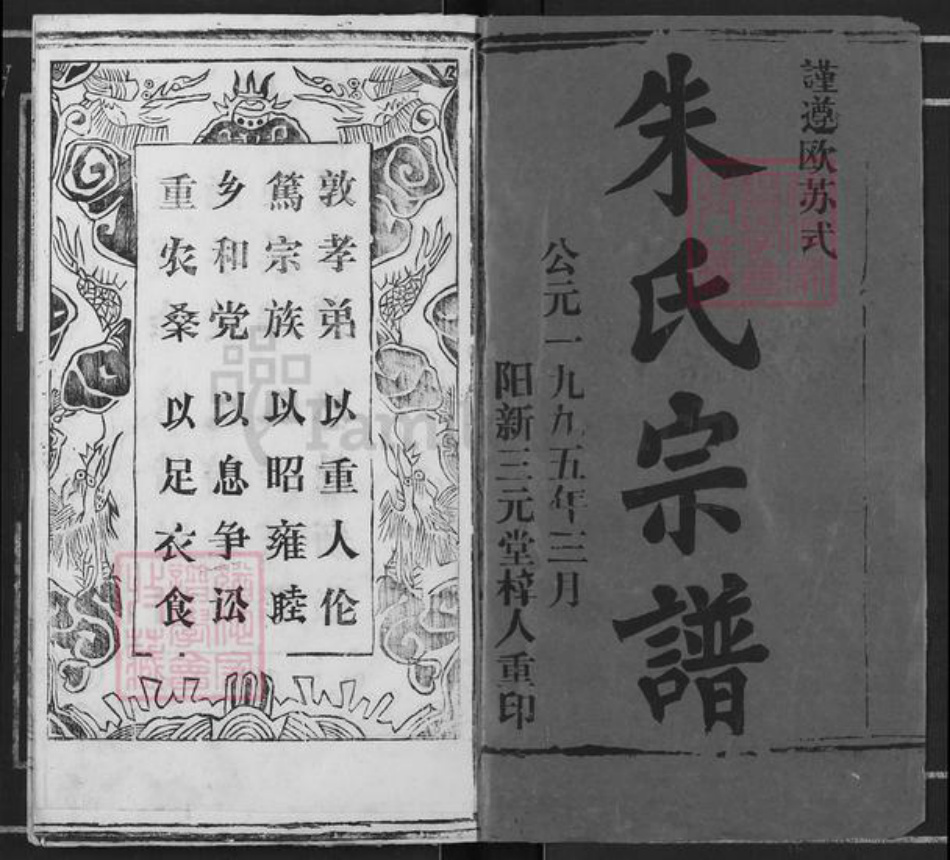 謹遵欧苏式
朱氏宗譜
公元一九九五年三月
阳新三元堂梓人重印
敦孝弟 以重人伦
篤宗族 以昭雍睦
乡和党 以息争讼
重农桑 以足衣食